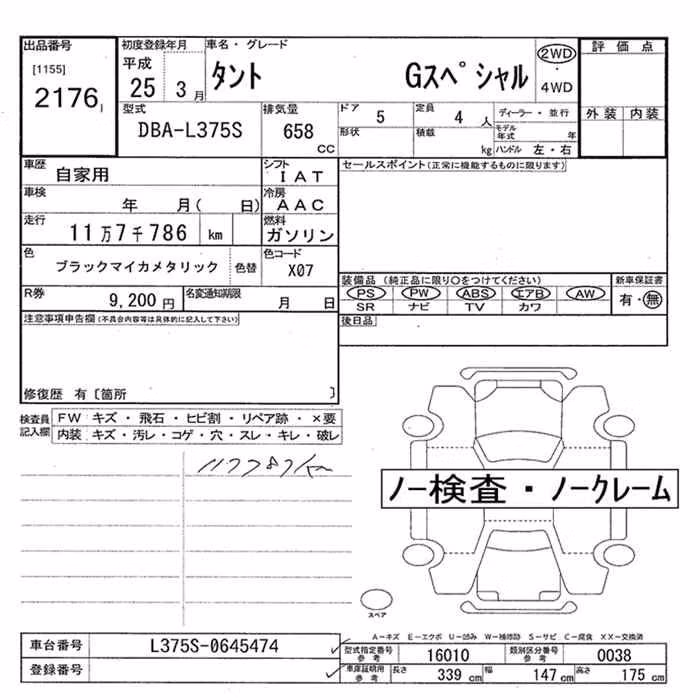 出品番号 初度登録年月 車名・グレード 評価点
[1155] 平成 2WD
2176 25 3月 タント Gスペシャル ・ 4WD
型式 排気量 ドア 5 定員 4人 ディーラー・並行 外装 内装
DBA-L375S 658 CC 形状 積載 kg モデル年式 年
ハンドル 左・右
車歴 自家用 シフト IAT セールスポイント(正常に機能するものに限ります)
車検 年 月( 日) 冷房 AAC
走行 11万7千786 km 燃料 ガソリン
色 ブラックマイカメタリック 色替 色コード X07
装備品(純正品に限り○をつけてください) 新車保証書
PS PW ABS エアB AW 有・無
R券 9,200円 名変通知期限 月 日 SR ナビ TV カワ
注意事項申告欄(不具合内容等は具体的に記入して下さい) 後日品
修復歴 有〔箇所 〕
検査員記入欄 FW キズ・飛石・ヒビ割・リペア跡・×要
内装 キズ・汚レ・コゲ・穴・スレ・キレ・破レ
117787km
ノー検査・ノークレーム
スペア
A-キズ E-エクボ U-凹み W-補修跡 S-サビ C-腐食 XX-交換済
車台番号 L375S-0645474 型式指定番号 参考 16010 類別区分番号 参考 0038
登録番号 車庫証明用 参考 長さ 339 cm 幅 147 cm 高さ 175 cm